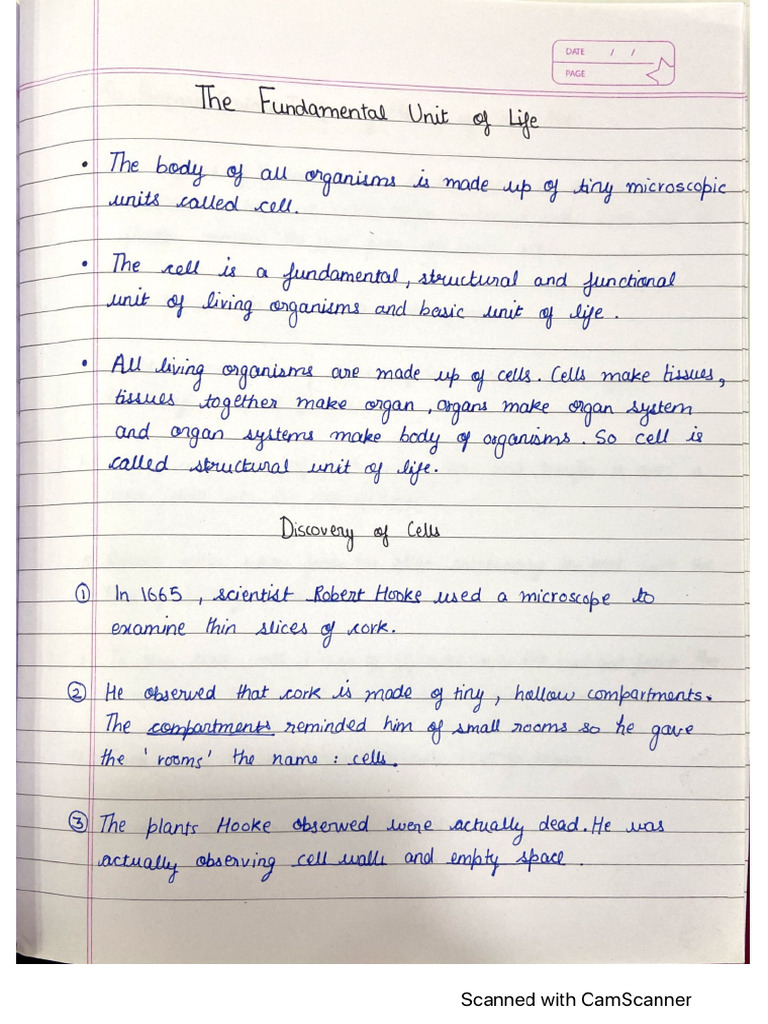 DATE / /
PAGE
The Fundamental Unit of Life
• The body of all organisms is made up of tiny microscopic
units called cell.
• The cell is a fundamental, structural and functional
unit of living organisms and basic unit of life.
• All living organisms are made up of cells. Cells make tissues,
tissues together make organ, organs make organ system
and organ systems make body of organisms. So cell is
called structural unit of life.
Discovery of Cells
① In 1665, scientist Robert Hooke used a microscope to
examine thin slices of cork.
② He observed that cork is made of tiny, hollow compartments.
The compartments reminded him of small rooms so he gave
the 'rooms' the name : cells.
③ The plants Hooke observed were actually dead. He was
actually observing cell walls and empty space.
Scanned with CamScanner